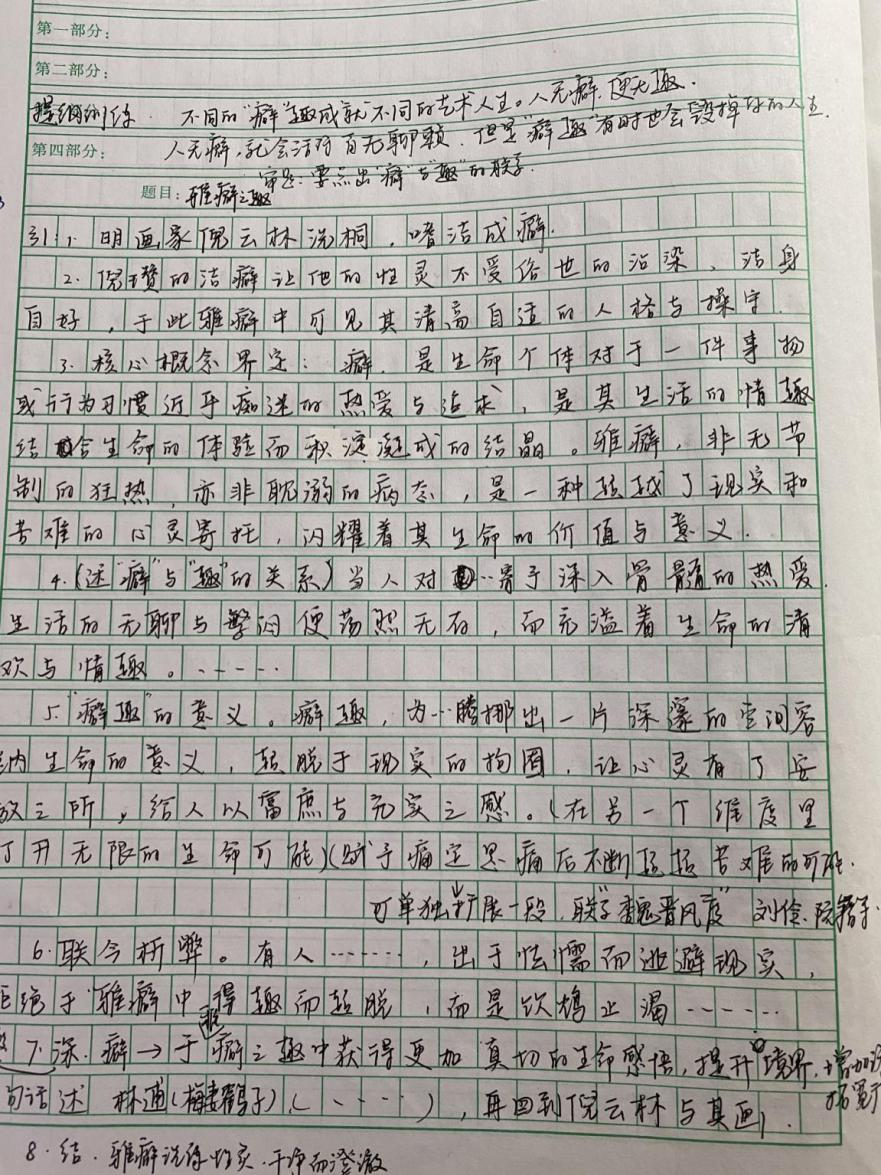 第一部分：
第二部分：
提纲训练. 不同的“癖”趣成就不同的艺术人生。人无癖，便无趣.
人无癖，就会活得百无聊赖. 但是“癖趣”有时也会毁掉你的人生.
第四部分：
审题：要点出“癖”与“趣”的联系.
题目：雅癖之趣
引：1. 明画家倪云林洗桐，嗜洁成癖.
2. 倪瓒的洁癖让他的性灵不受俗世的沾染，洁身
自好，于此雅癖中可见其清高自适的人格与操守.
3. 核心概念界定：癖，是生命个体对于一件事物
或行为习惯近乎痴迷的热爱与追求，是其生活的情趣
结合生命的体验而积淀凝成的结晶。雅癖，非无节
制的狂热，亦非耽溺的病态，是一种超越了现实和
苦难的心灵寄托，闪耀着其生命的价值与意义.
4.(述“癖”与“趣”的关系)当人对…寄予深入骨髓的热爱，
生活的无聊与繁闷便荡然无存，而充溢着生命的清
欢与情趣。……
5.“癖趣”的意义。癖趣，为…腾挪出一片深邃的空间容
纳生命的意义，超脱于现实的拘囿，让心灵有了安
放之所，给人以富庶与充实之感。(在另一个维度里
打开无限的生命可能)(赋予痛定思痛后不断超拔苦难的可能.
可单独扩展一段，联系“魏晋风度” 刘伶、阮籍等.
6. 联今析弊。有人……，出于怯懦而逃避现实，
拒绝于雅癖中得趣而超脱，而是饮鸩止渴……
7. 深. 癖→于癖之趣中获得更加真切的生命感悟，提升境界，增加
句话述 林逋(梅妻鹤子)(……)，再回到倪云林与其画.
8. 结. 雅癖洗练 干净而澄澈